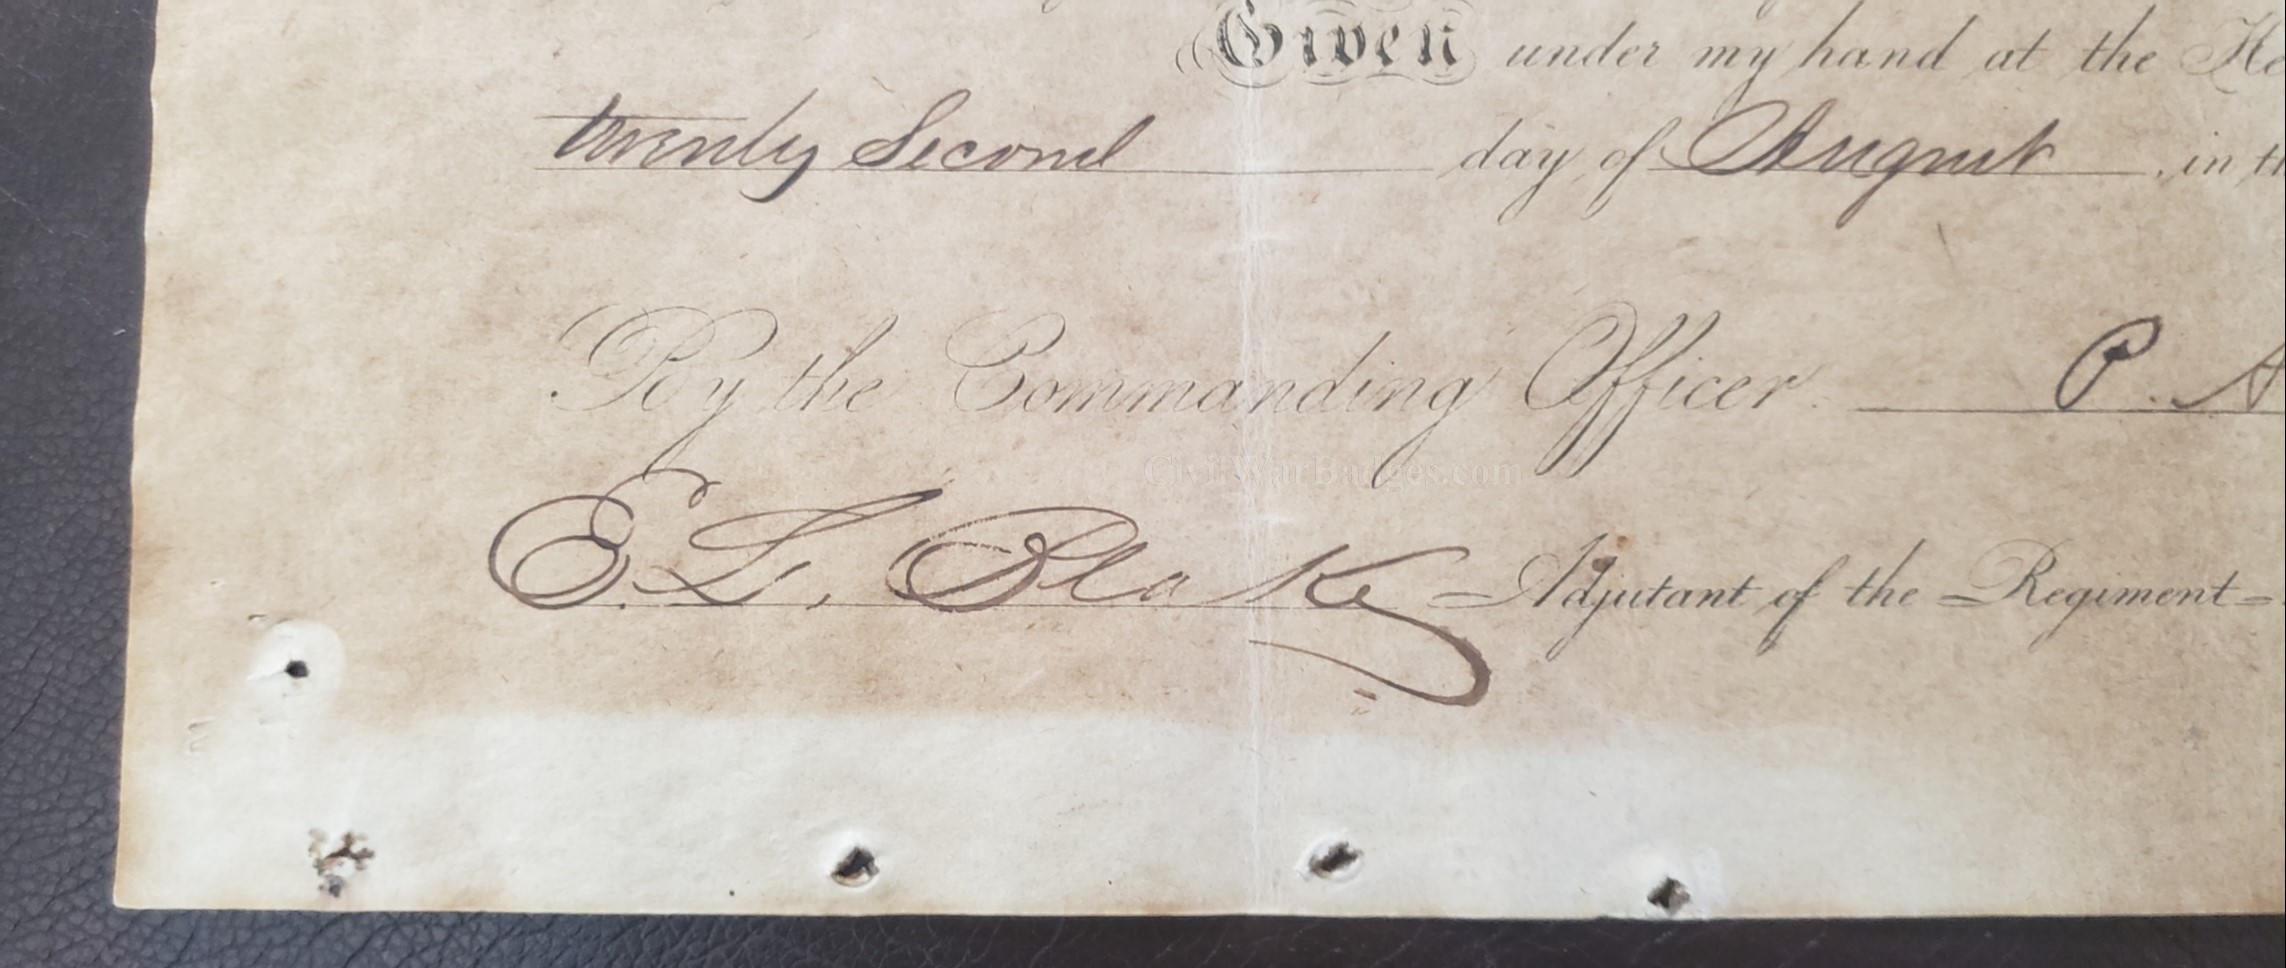 Given under my hand at the He
twenty Second day of August, in th
By the Commanding Officer. P. A
CivilWarBadges.com
E. L. Blake Adjutant of the Regiment